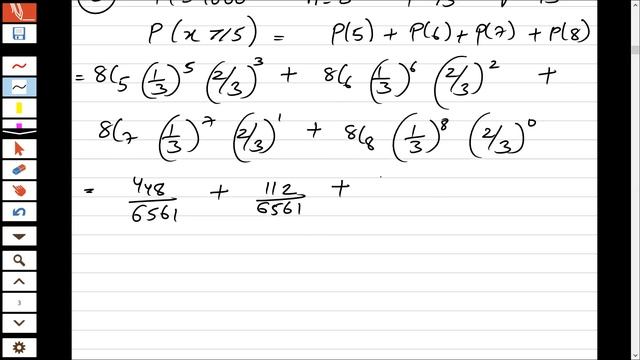 P(x ⩾ 5) = P(5) + P(6) + P(7) + P(8)
= 8C5 (1/3)^5 (2/3)^3 + 8C6 (1/3)^6 (2/3)^2 +
8C7 (1/3)^7 (2/3)^1 + 8C8 (1/3)^8 (2/3)^0
= 448/6561 + 112/6561 +
3